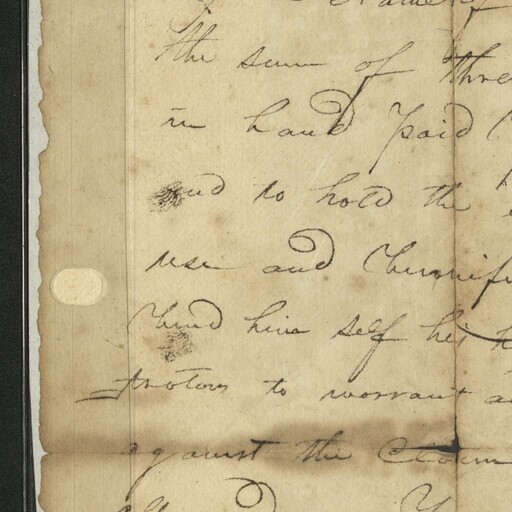 the sum of thre
in hand paid
and to hold the
use and
bind him self his h
trators to worrant a
against the Claim